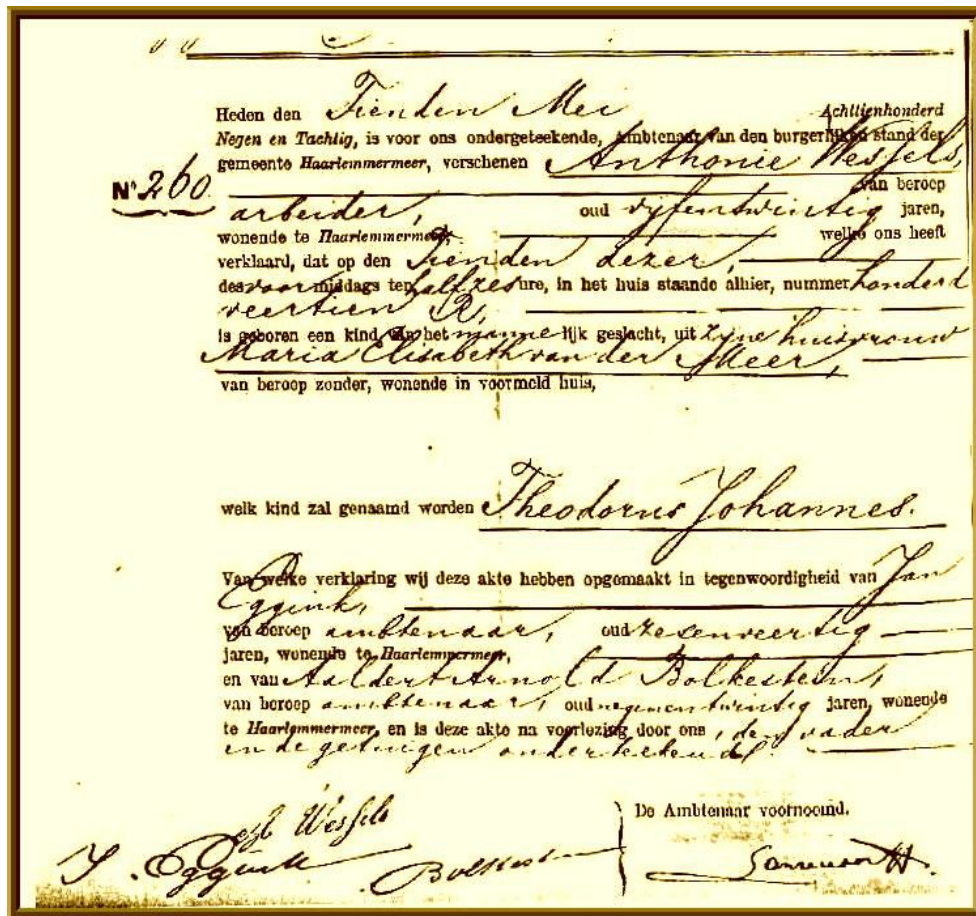 Heden den Tienden Mei Achttienhonderd
Negen en Tachtig, is voor ons ondergeteekende, Ambtenaar van den burgerlijken stand der
gemeente Haarlemmermeer, verschenen Anthonie Wessels,
Nº 260 van beroep
arbeider, oud vijfentwintig jaren,
wonende te Haarlemmermeer, welke ons heeft
verklaard, dat op den Tienden dezer,
des voormiddags ten half zes ure, in het huis staande alhier, nummer honderd
veertien R,
is geboren een kind van het mannelijk geslacht, uit zijne huisvrouw
Maria Elisabeth van der Meer,
van beroep zonder, wonende in voormeld huis,
welk kind zal genaamd worden Theodorus Johannes.
Van welke verklaring wij deze akte hebben opgemaakt in tegenwoordigheid van Jan
Eggink,
van beroep ambtenaar, oud zesenveertig
jaren, wonende te Haarlemmermeer,
en van Aaldert Arnold Bolkestein,
van beroep ambtenaar, oud negenentwintig jaren, wonende
te Haarlemmermeer, en is deze akte na voorlezing door ons, den vader
en de getuigen onderteekend.
Wessels
De Ambtenaar voornoemd.
J. Eggink Bolkestein